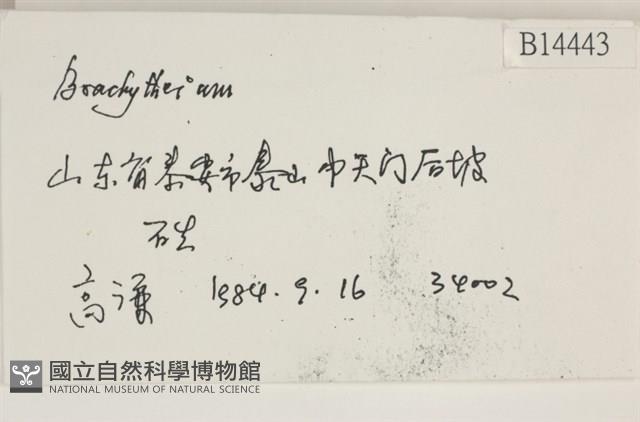 B14443
Brachythecium
山东省泰安市泰山中天门后坡
石生
高谦 1984.9.16 34002
國立自然科學博物館
NATIONAL MUSEUM OF NATURAL SCIENCE